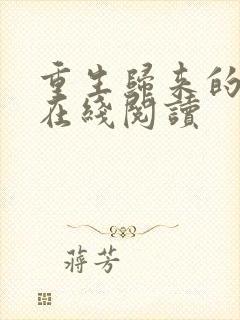 重生歸来的
在綫閱讀
蔣芳